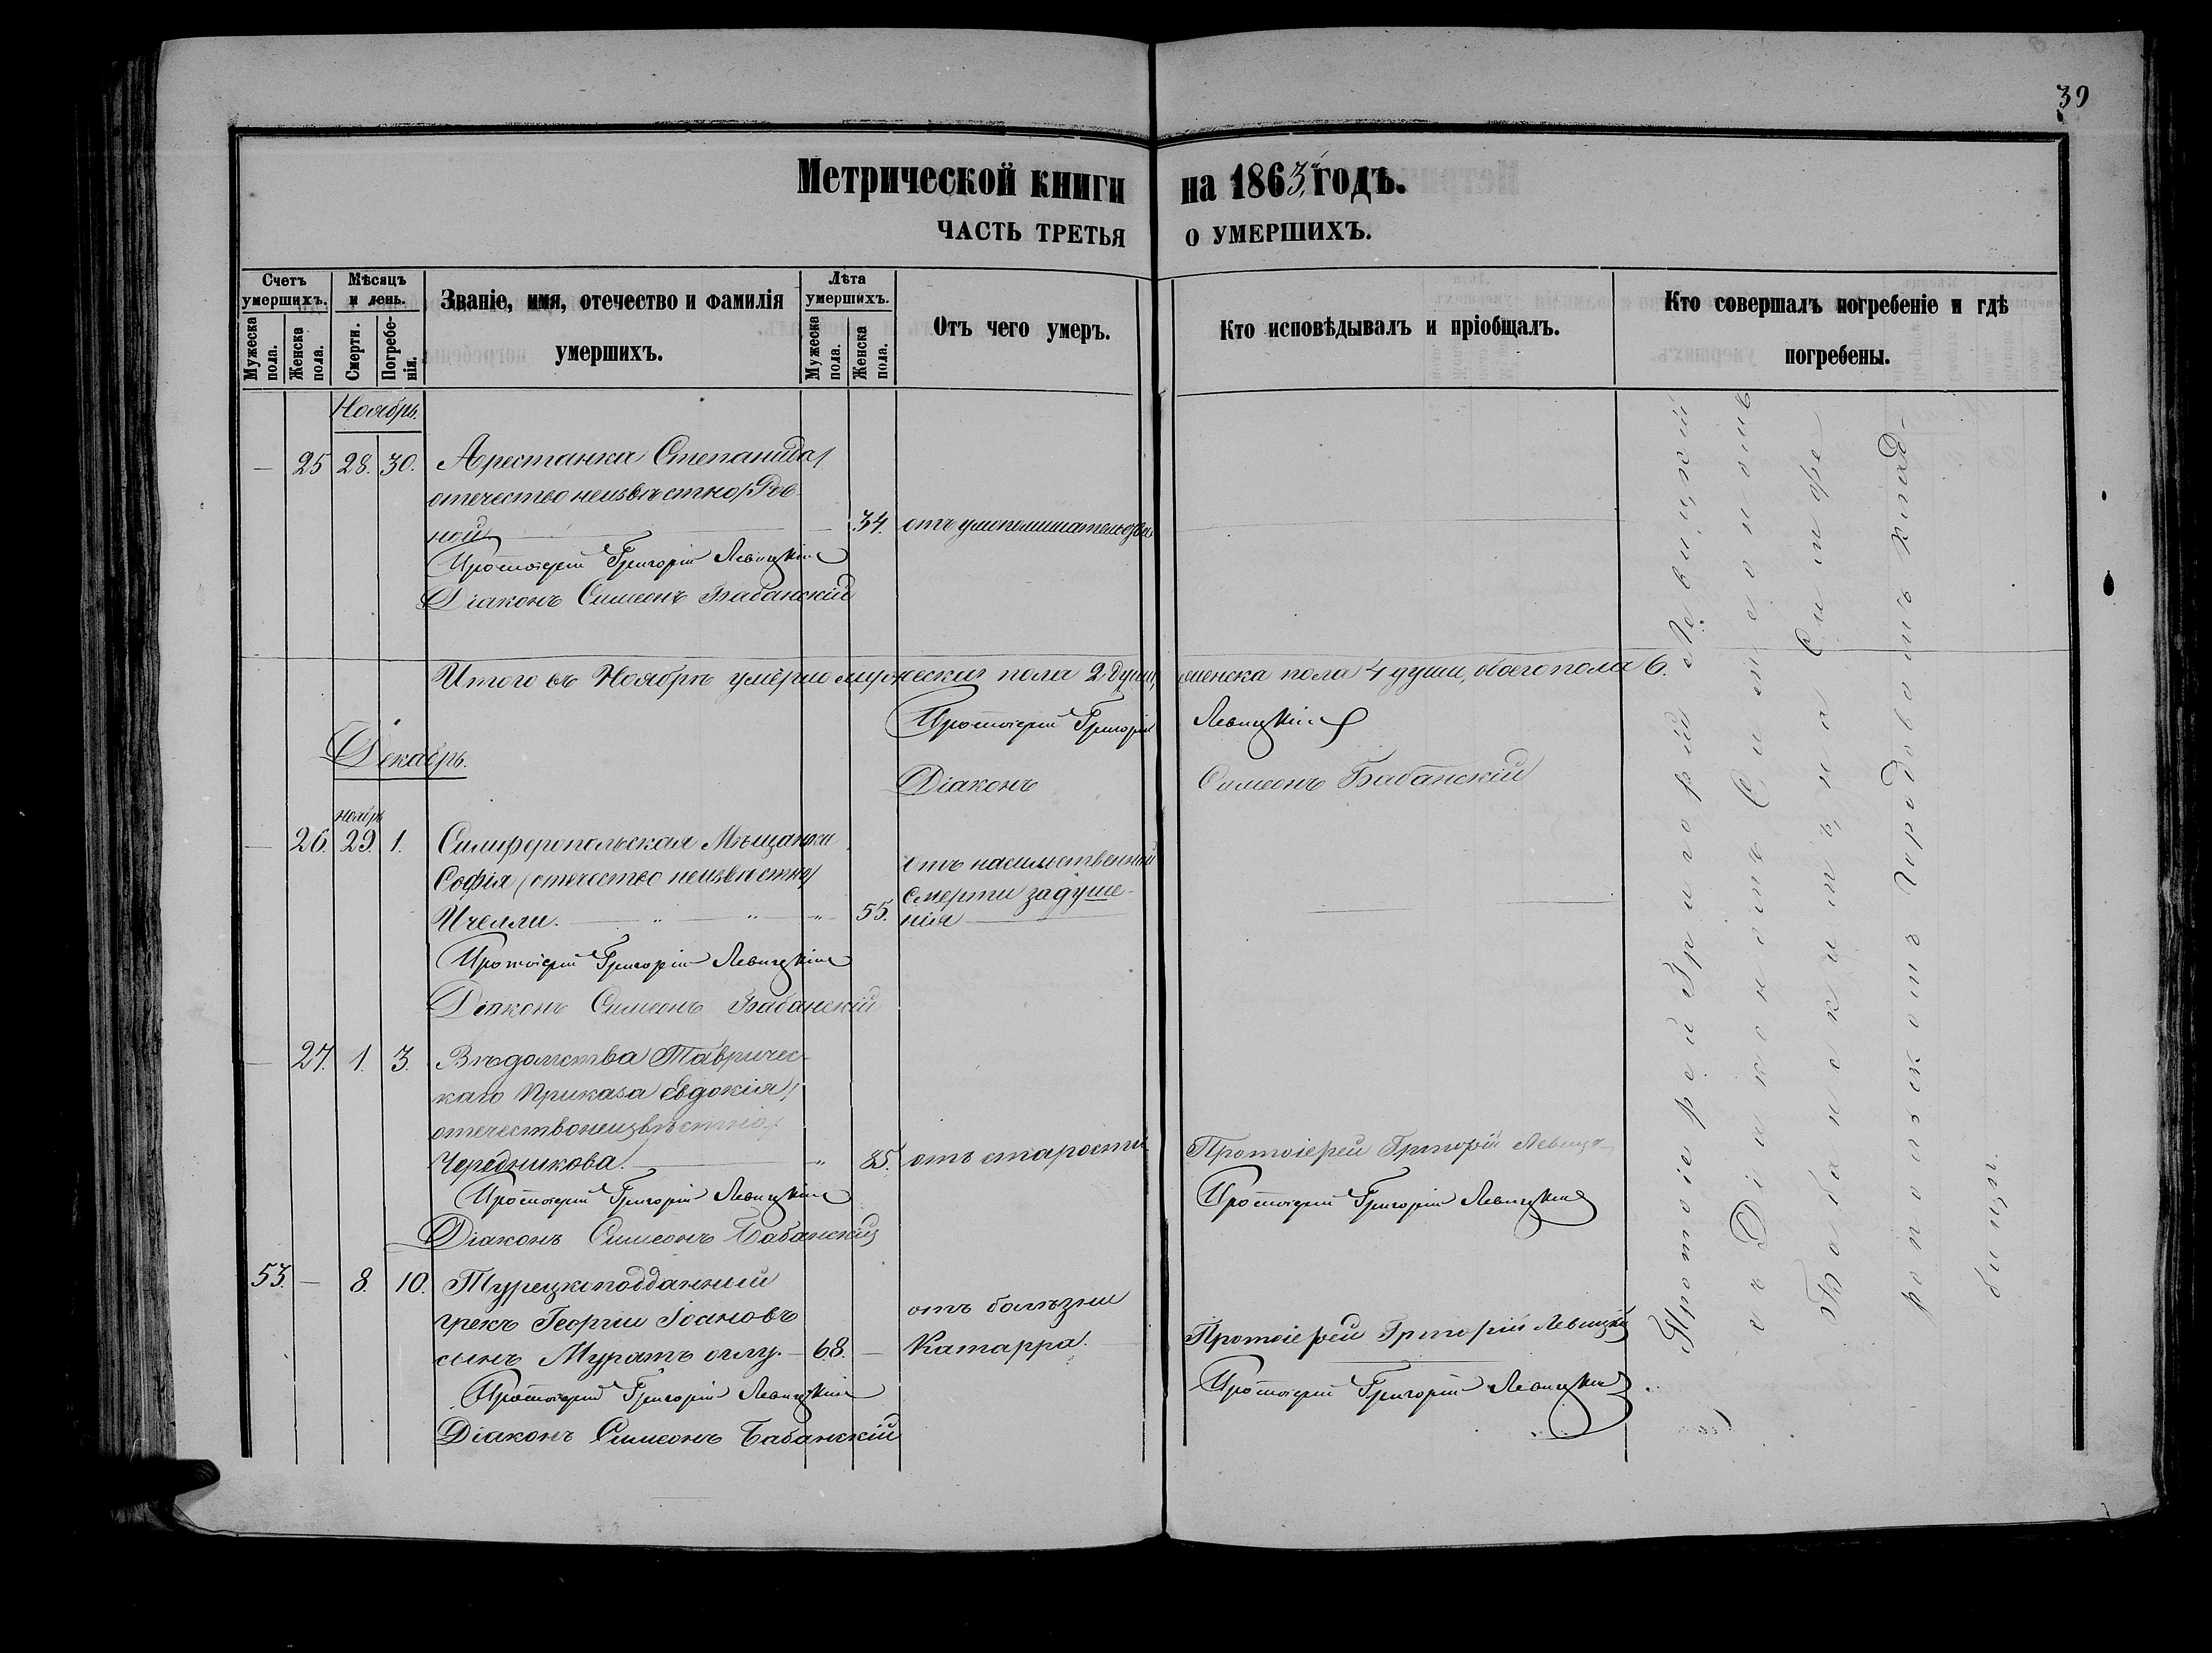 39
Метрической книги на 1863й годъ.
ЧАСТЬ ТРЕТЬЯ О УМЕРШИХЪ.
Счетъ умершихъ.
Мужеска пола.
Женска пола.
Мѣсяцъ и день.
Смерти.
Погребенія.
Званіе, имя, отечество и фамилія
умершихъ.
Лѣта умершихъ.
Мужеска пола.
Женска пола.
Отъ чего умеръ.
Кто исповѣдывалъ и пріобщалъ.
Кто совершалъ погребеніе и гдѣ
погребены.
Ноябрь.
— 25 28. 30. Арестанка Степанида /
отечество неизвѣстно /
ной — 34. отъ умопомѣшательства
Протоіерей Григорій Левицкій
Діаконъ Симеонъ Бабанскій
Итого въ Ноябрѣ умерло мужеска пола 2 души, женска пола 4 души, обоего пола 6.
Протоіерей Григорій Левицкій
Декабрь.
Діаконъ Симеонъ Бабанскій
Ноябрь
— 26. 29. 1. Симферопольская Мѣщанка
Софія (отечество неизвѣстно)
Ичелли. — „ — „ — „ 55.
отъ насильственной
смерти задуше-
нія
Протоіерей Григорій Левицкій
Діаконъ Симеонъ Бабанскій
— 27. 1. 3. Вѣдомства Тавричес-
каго Приказа Евдокія /
отечество неизвѣстно /
Чередникова. — „ 85. отъ старости Протоіерей Григорій Левицк
Протоіерей Григорій Левицкій
Протоіерей Григорій Левицкій
Діаконъ Симеонъ Бабанскій
53. — 8. 10. Турецкоподданный
грекъ Георгіи Іоановъ
сынъ Муратъ оглу. — 68. —
отъ болѣзни
Катарра.
Протоіерей Григорій Левицкій
Протоіерей Григорій Левицкій
Протоіерей Григорій Левицкій
Діаконъ Симеонъ Бабанскій
Протоіерей Григорій Левицкій
съ Діакономъ Симеономъ
Бабанскимъ, на Симфе
ропольскомъ городовомъ клад-
бищѣ.